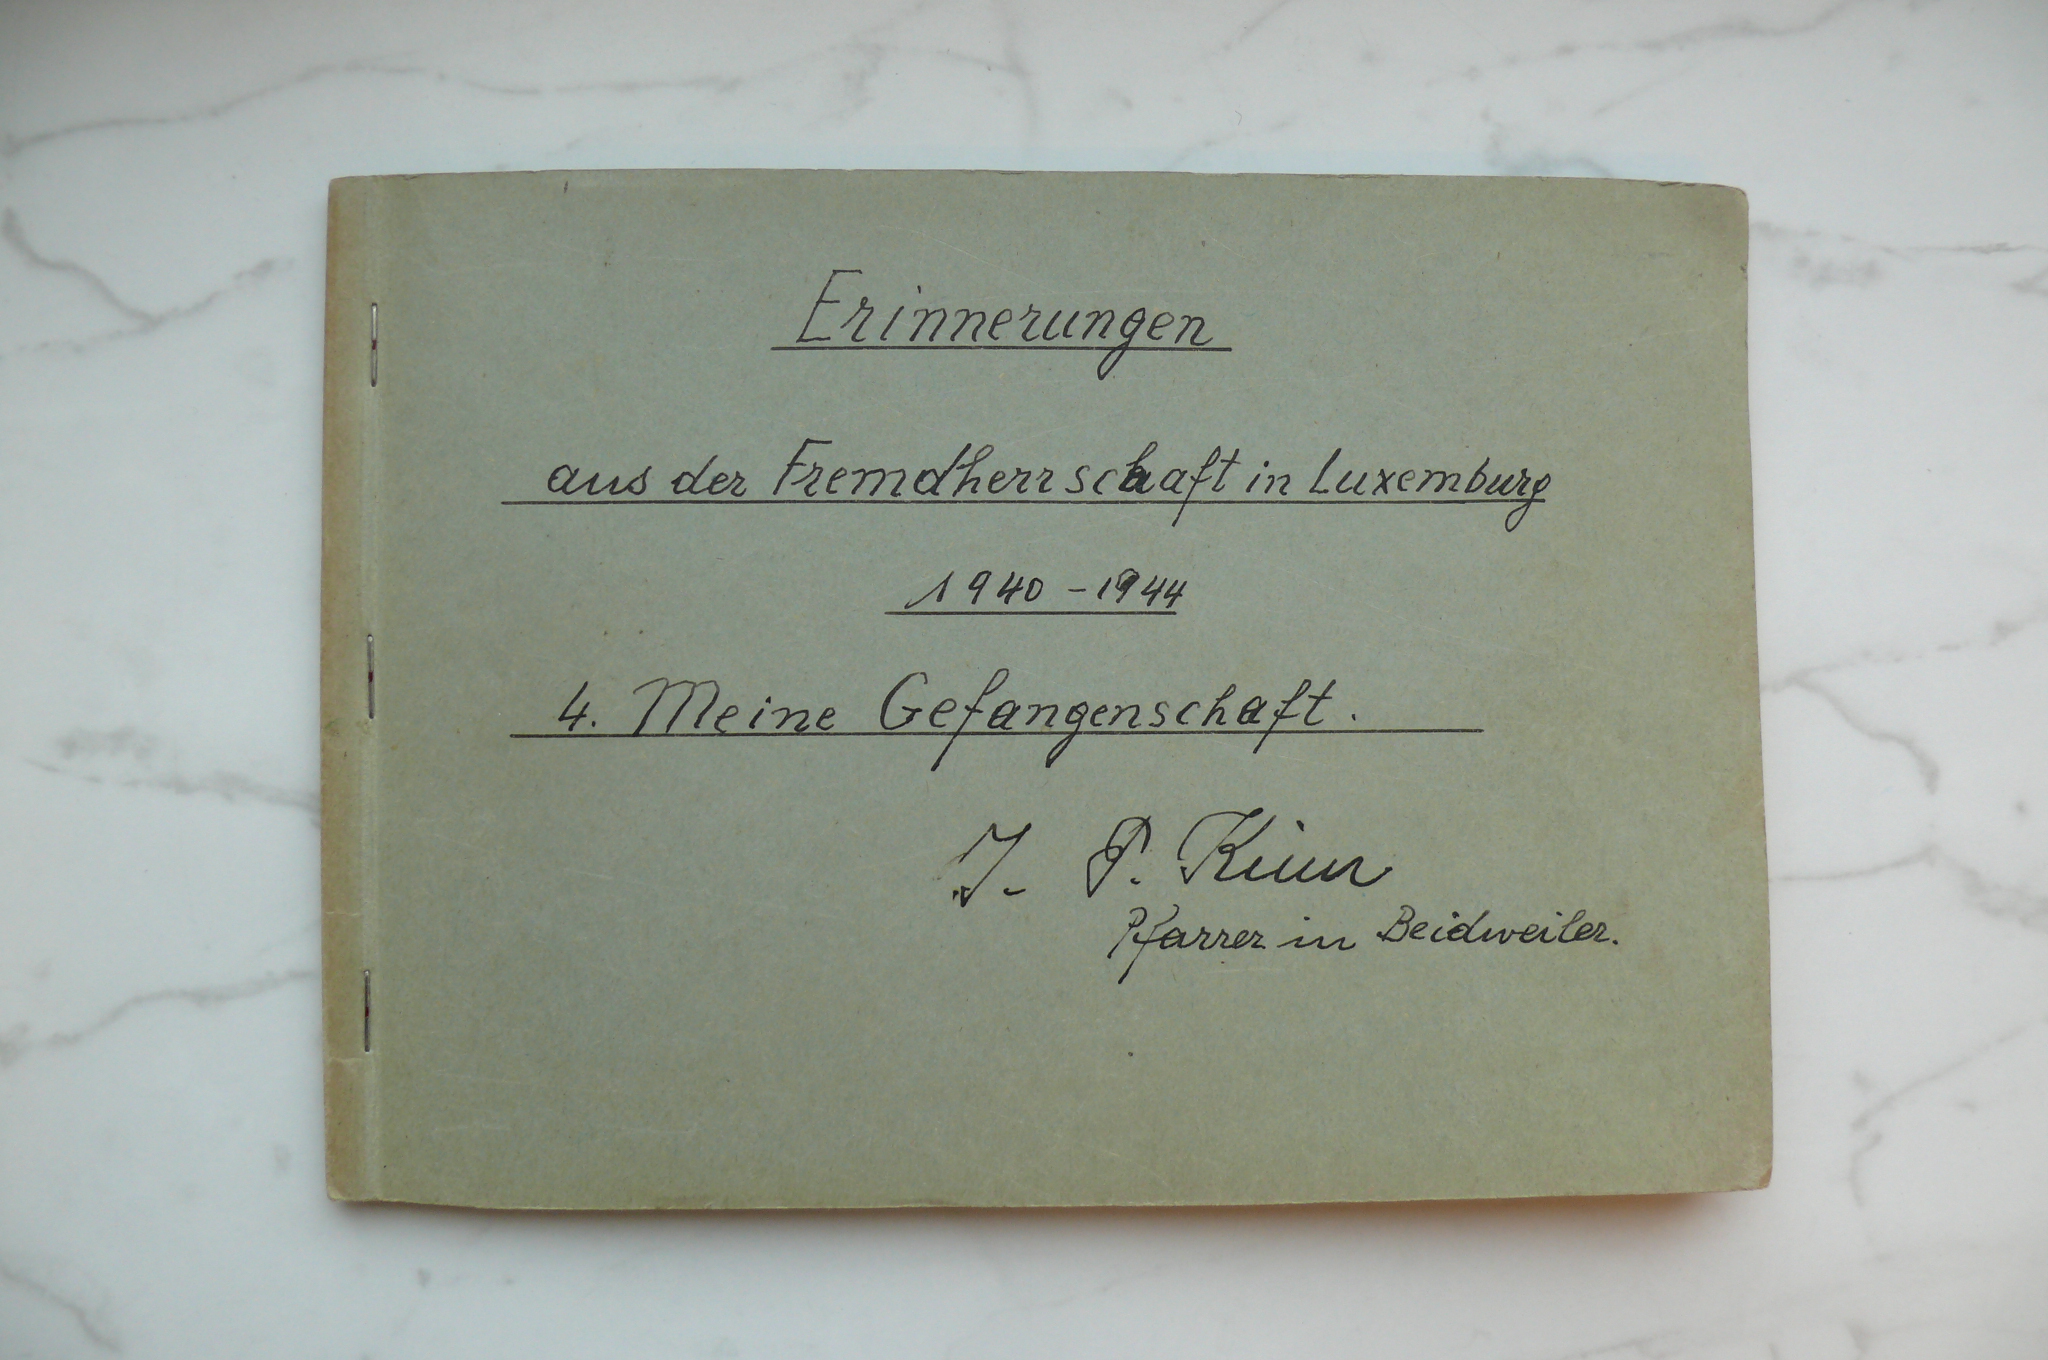 Erinnerungen
aus der Fremdherrschaft in Luxemburg
1940 - 1944
4. Meine Gefangenschaft.
J. P. Keiun
Pfarrer in Beidweiler.